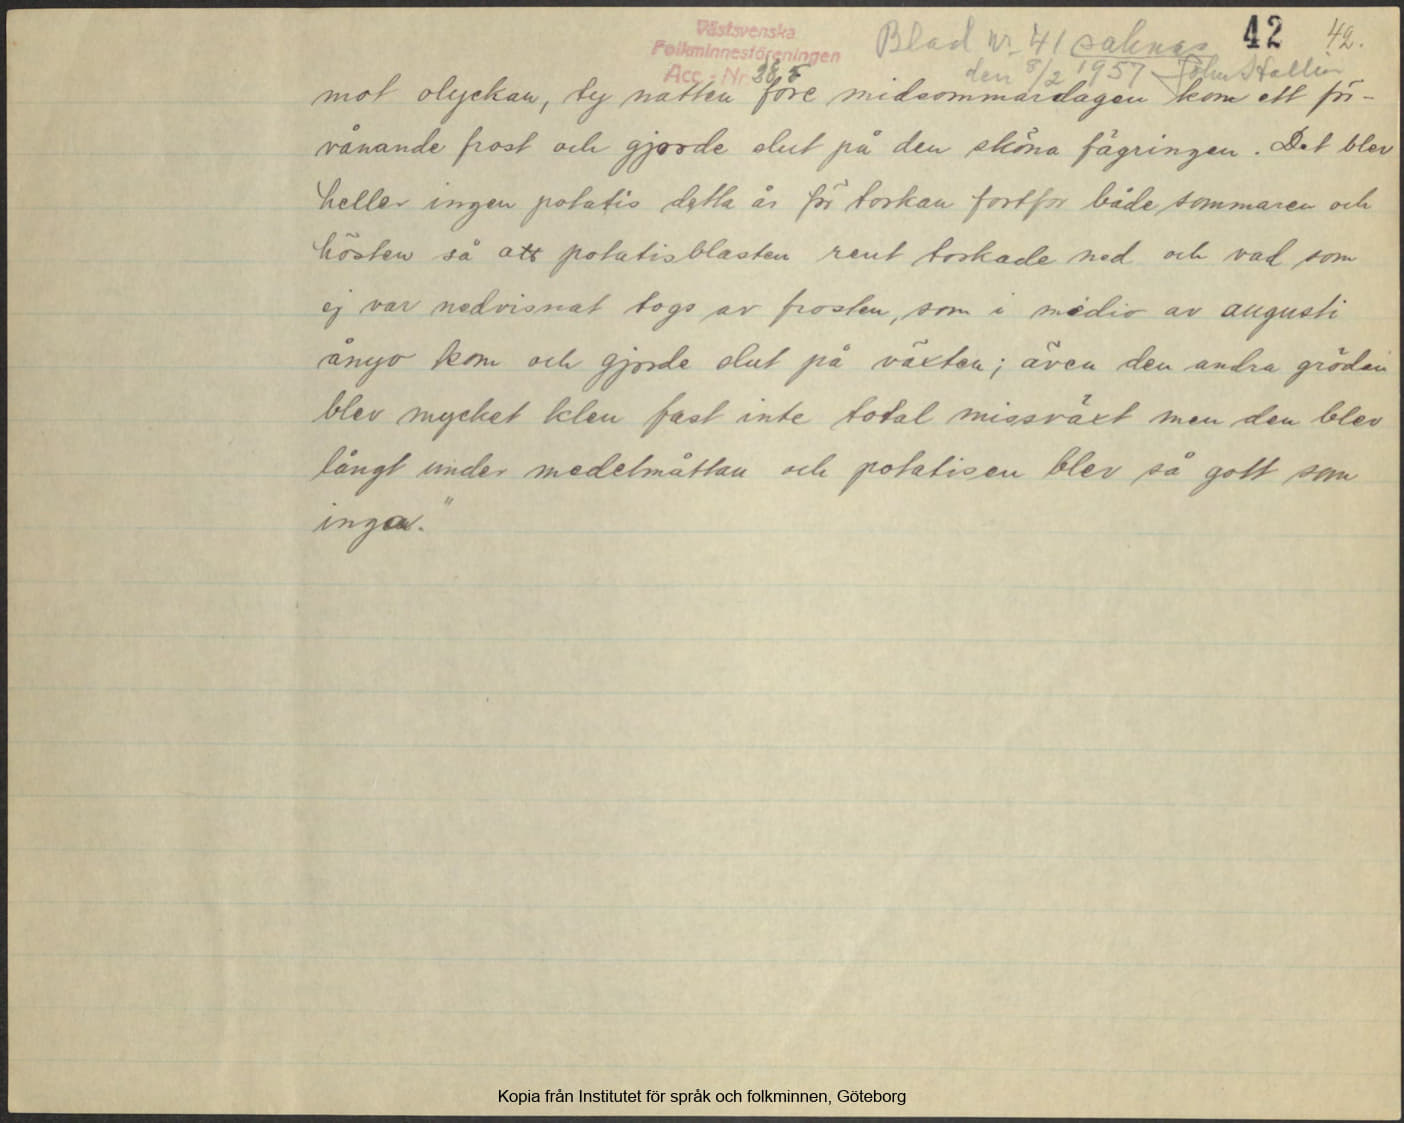 Västsvenska
Folkminnesföreningen
Acc.-Nr 385
Blad nr 41 saknas
den 8/2 1957 John Hallin
42
42.
mot olyckan, ty natten före midsommardagen kom ett för-
vånande frost och gjorde slut på den sköna fägringen. Det blev
heller ingen potatis detta år för torkan fortfor både sommaren och
hösten så att potatisblasten rent torkade ned och vad som
ej var nedvisnat togs av frosten, som i medio av augusti
ånyo kom och gjorde slut på växten; även den andra grödan
blev mycket klen fast inte total missväxt men den blev
långt under medelmåttan och potatisen blev så gott som
inga."
Kopia från Institutet för språk och folkminnen, Göteborg